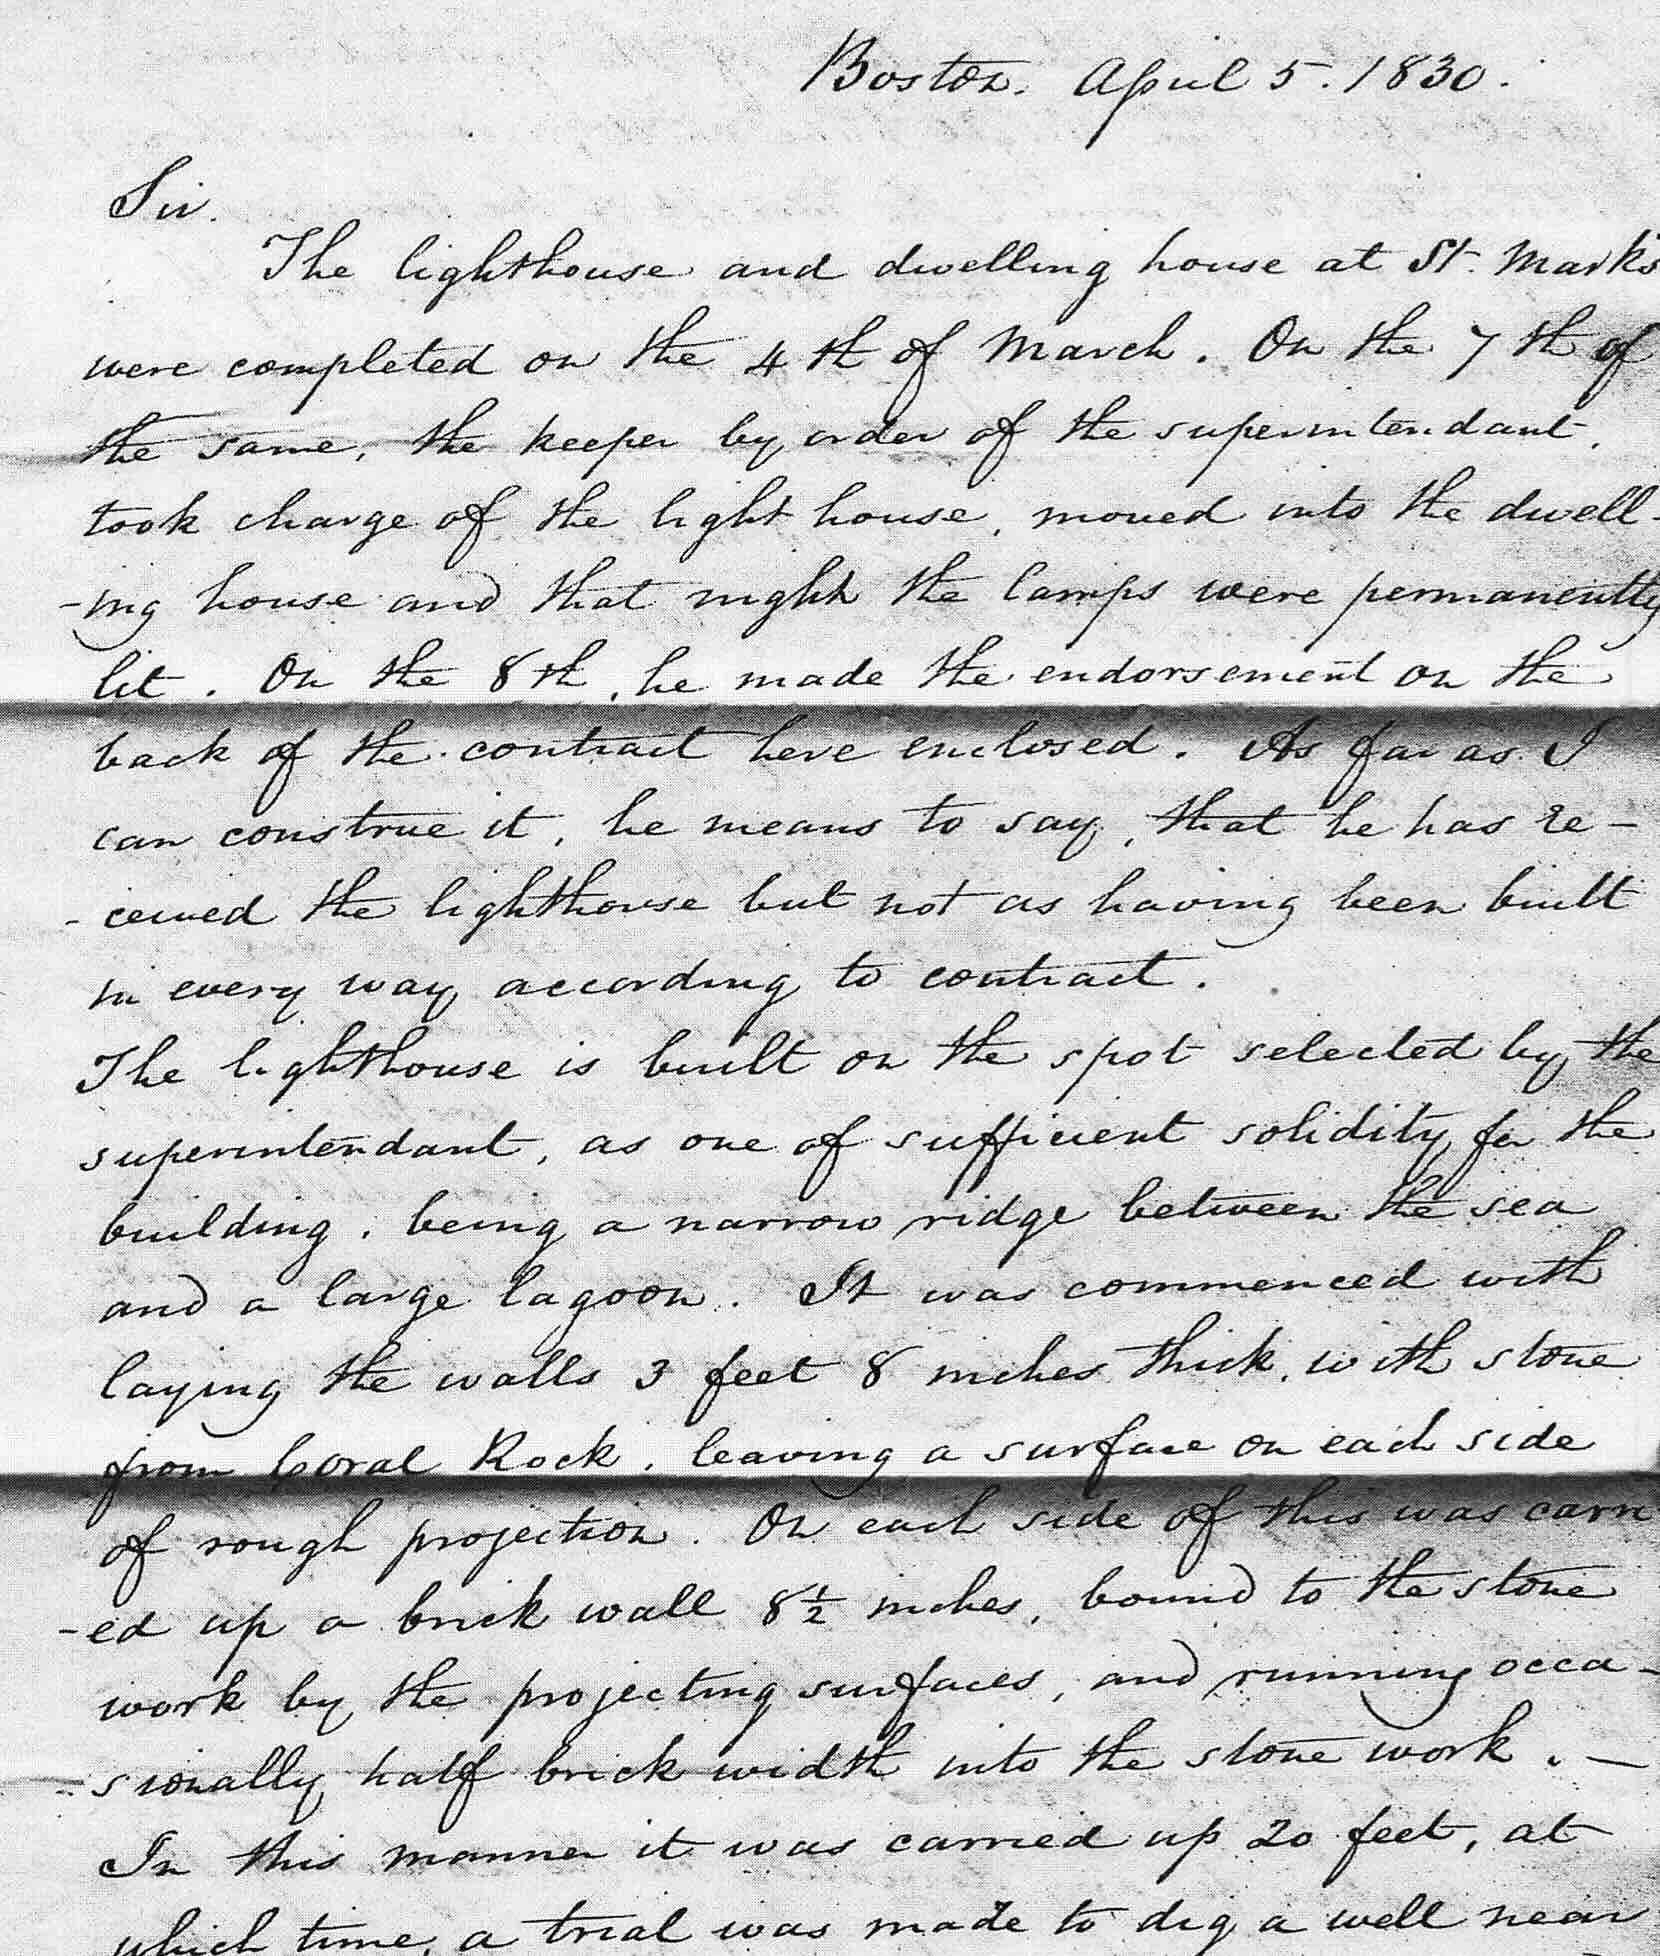 Boston. April 5. 1830.
Sir.
The lighthouse and dwelling house at St. Mark's
were completed on the 4th of March. On the 7th of
the same, the keeper by order of the superintendant,
took charge of the light house, moved into the dwell-
-ing house and that night the lamps were permanently
lit. On the 8th, he made the endorsement on the
back of the contract here enclosed. As far as I
can construe it, he means to say, that he has re-
-ceived the lighthouse but not as having been built
in every way according to contract.
The lighthouse is built on the spot selected by the
superintendant, as one of sufficient solidity for the
building, being a narrow ridge between the sea
and a large lagoon. It was commenced with
laying the walls 3 feet 8 inches thick, with stone
from Coral Rock, leaving a surface on each side
of rough projection. On each side of this was carri
-ed up a brick wall 8½ inches, bound to the stone
work by the projecting surfaces, and running occa-
-sionally half brick width into the stone work. —
In this manner it was carried up 20 feet, at
which time, a trial was made to dig a well near